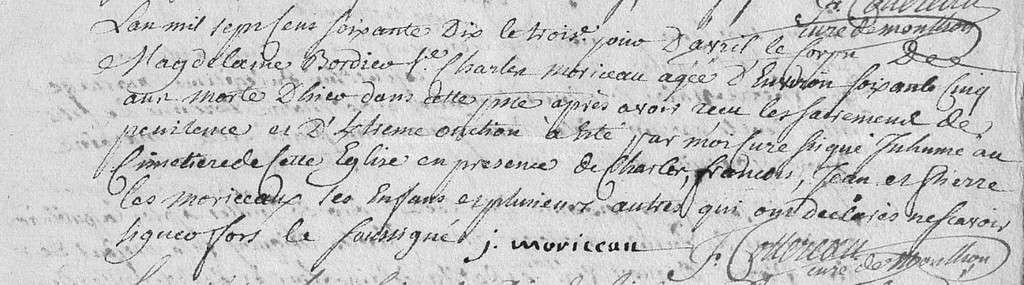 J. Cottereau
curé de monthion
Lan mil sept Cens soixante Dix le trois.e jour D'avril le Corps De
Magdelaine Bordieu f.e Charles moriceau agée D'Environ soixante Cinq
ans morte D'hier dans cette p.sse après avoir recu les sacremens de
penitence et D'Extreme onction à Eté par moi Curé signé Inhumé au
Cimetiere de Cette Eglise en presence de Charles, francois, Jean et Pierre
les moriceaux ses Enfans et plusieurs autres qui ont declarés ne scavoir
signer fors le soussigné j. moriceau J. Cottereau
curé de Monthion